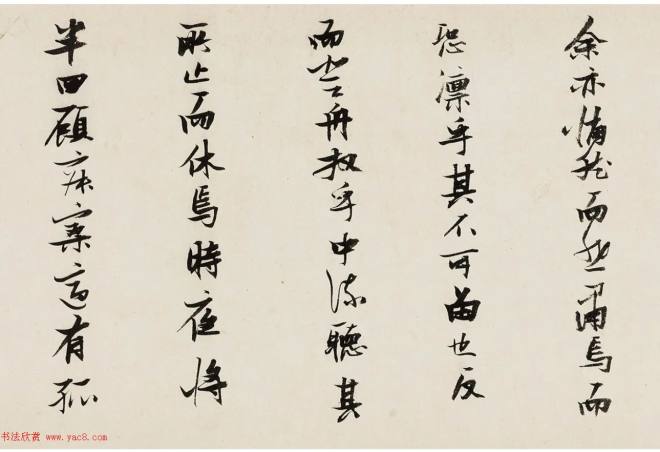 余亦悄然而悲肅焉而
恐凜乎其不可留也反
而登舟放乎中流聽其
所止而休焉時夜將
半四顧寂寥適有孤
书法欣赏 www.yac8.com